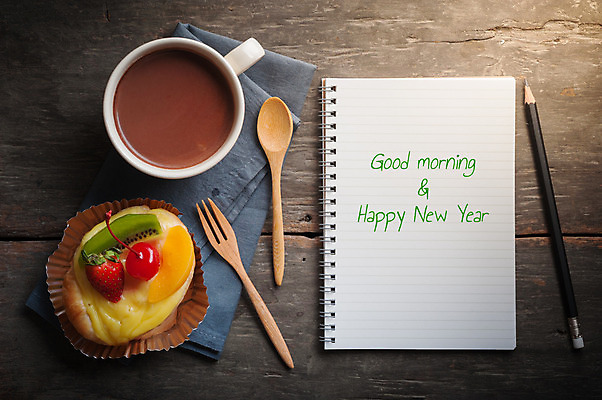 Good morning
&
Happy New Year